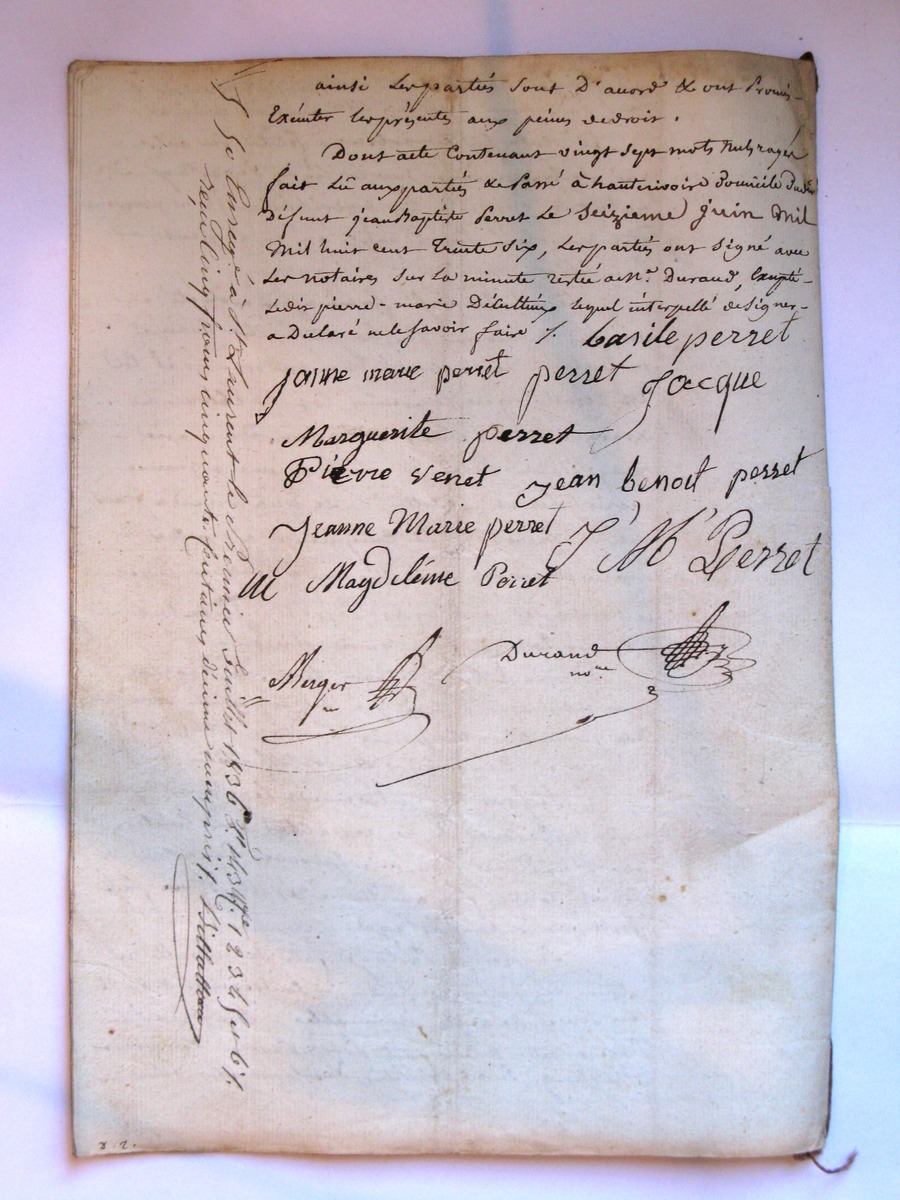 ainsi les parties sont D'accord & ont Promis
Exécuter les présentes aux peines de droit.
Dont acte Contenant vingt sept mots
fait Lû aux parties & Passé à hauterivoire Domicile Dudit
Défunt jean Baptiste Perret Le Seizieme juin Mil
Mil huit cent Trente Six, Les parties ont Signé avec
Les notaires sur La minute restée à Mr. Durand, Excepté
Ledit pierre-marie lequel interpellé de signer
a Declaré ne le savoir faire /. basile perret
janne marie perret perret Jacque
Marguerite perret
Pierre venet jean benoit perret
Jeanne Marie perret J M Perret
M Magdeléine Perret
Durand
nore.
Merger
Enregé à St. Laurent le Premier Juillet 1836
reçu Cinq francs cinquante centimes décime compris /.